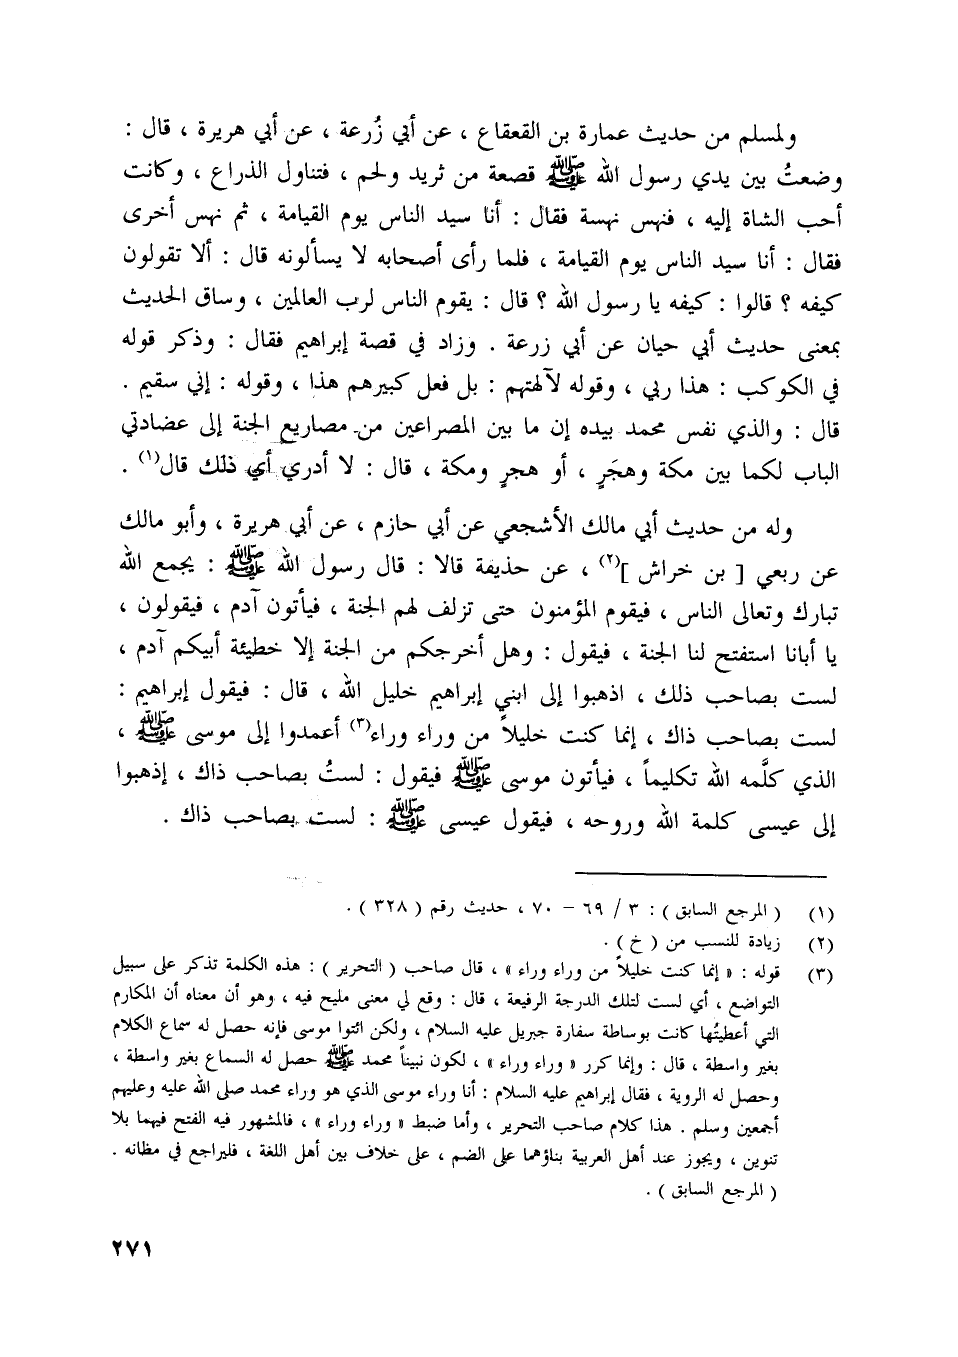 ولمسلم من حديث عمارة بن القعقاع ، عن أبي زُرعة ، عن أبي هريرة ، قال :
وضعتُ بين يدي رسول الله ﷺ قصعة من ثريد ولحم ، فتناول الذراع ، وكانت
أحب الشاة إليه ، فنهس نهسة فقال : أنا سيد الناس يوم القيامة ، ثم نهس أخرى
فقال : أنا سيد الناس يوم القيامة ، فلما رأى أصحابه لا يسألونه قال : ألا تقولون
كيفه ؟ قالوا : كيفه يا رسول الله ؟ قال : يقوم الناس لرب العالمين ، وساق الحديث
بمعنى حديث أبي حيان عن أبي زرعة . وزاد في قصة إبراهيم فقال : وذكر قوله
في الكوكب : هذا ربي ، وقوله لآلهتهم : بل فعل كبيرهم هذا ، وقوله : إني سقيم .
قال : والذي نفس محمد بيده إن ما بين المصراعين من مصاريع الجنة إلى عضادتي
الباب لكما بين مكة وهجَرٍ ، أو هجرٍ ومكة ، قال : لا أدري أي ذلك قال(١) .
وله من حديث أبي مالك الأشجعي عن أبي حازم ، عن أبي هريرة ، وأبو مالك
عن ربعي [ بن خراش ](٢) ، عن حذيفة قالا : قال رسول الله ﷺ : يجمع الله
تبارك وتعالى الناس ، فيقوم المؤمنون حتى تزلف لهم الجنة ، فيأتون آدم ، فيقولون ،
يا أبانا استفتح لنا الجنة ، فيقول : وهل أخرجكم من الجنة إلا خطيئة أبيكم آدم ،
لست بصاحب ذلك ، اذهبوا إلى ابني إبراهيم خليل الله ، قال : فيقول إبراهيم :
لست بصاحب ذاك ، إنما كنت خليلاً من وراء وراء(٣) أعمدوا إلى موسى ﷺ ،
الذي كلَّمه الله تكليماً ، فيأتون موسى ﷺ فيقول : لستُ بصاحب ذاك ، إذهبوا
إلى عيسى كلمة الله وروحه ، فيقول عيسى ﷺ : لست بصاحب ذاك .
(١) ( المرجع السابق ) : ٣ / ٦٩ – ٧٠ ، حديث رقم ( ٣٢٨ ) .
(٢) زيادة للنسب من ( خ ) .
(٣) قوله : « إنما كنت خليلاً من وراء وراء » ، قال صاحب ( التحرير ) : هذه الكلمة تذكر على سبيل
التواضع ، أي لست لتلك الدرجة الرفيعة ، قال : وقع لي معنى مليح فيه ، وهو أن معناه أن المكارم
التي أعطيتُها كانت بوساطة سفارة جبريل عليه السلام ، ولكن ائتوا موسى فإنه حصل له سماع الكلام
بغير واسطة ، قال : وإنما كرر « وراء وراء » ، لكون نبيناً محمد ﷺ حصل له السماع بغير واسطة ،
وحصل له الروية ، فقال إبراهيم عليه السلام : أنا وراء موسى الذي هو وراء محمد صلى الله عليه وعليهم
أجمعين وسلم . هذا كلام صاحب التحرير ، وأما ضبط « وراء وراء » ، فالمشهور فيه الفتح فيهما بلا
تنوين ، ويجوز عند أهل العربية بناؤهما على الضم ، على خلاف بين أهل اللغة ، فليراجع في مظانه .
( المرجع السابق ) .
٢٧١